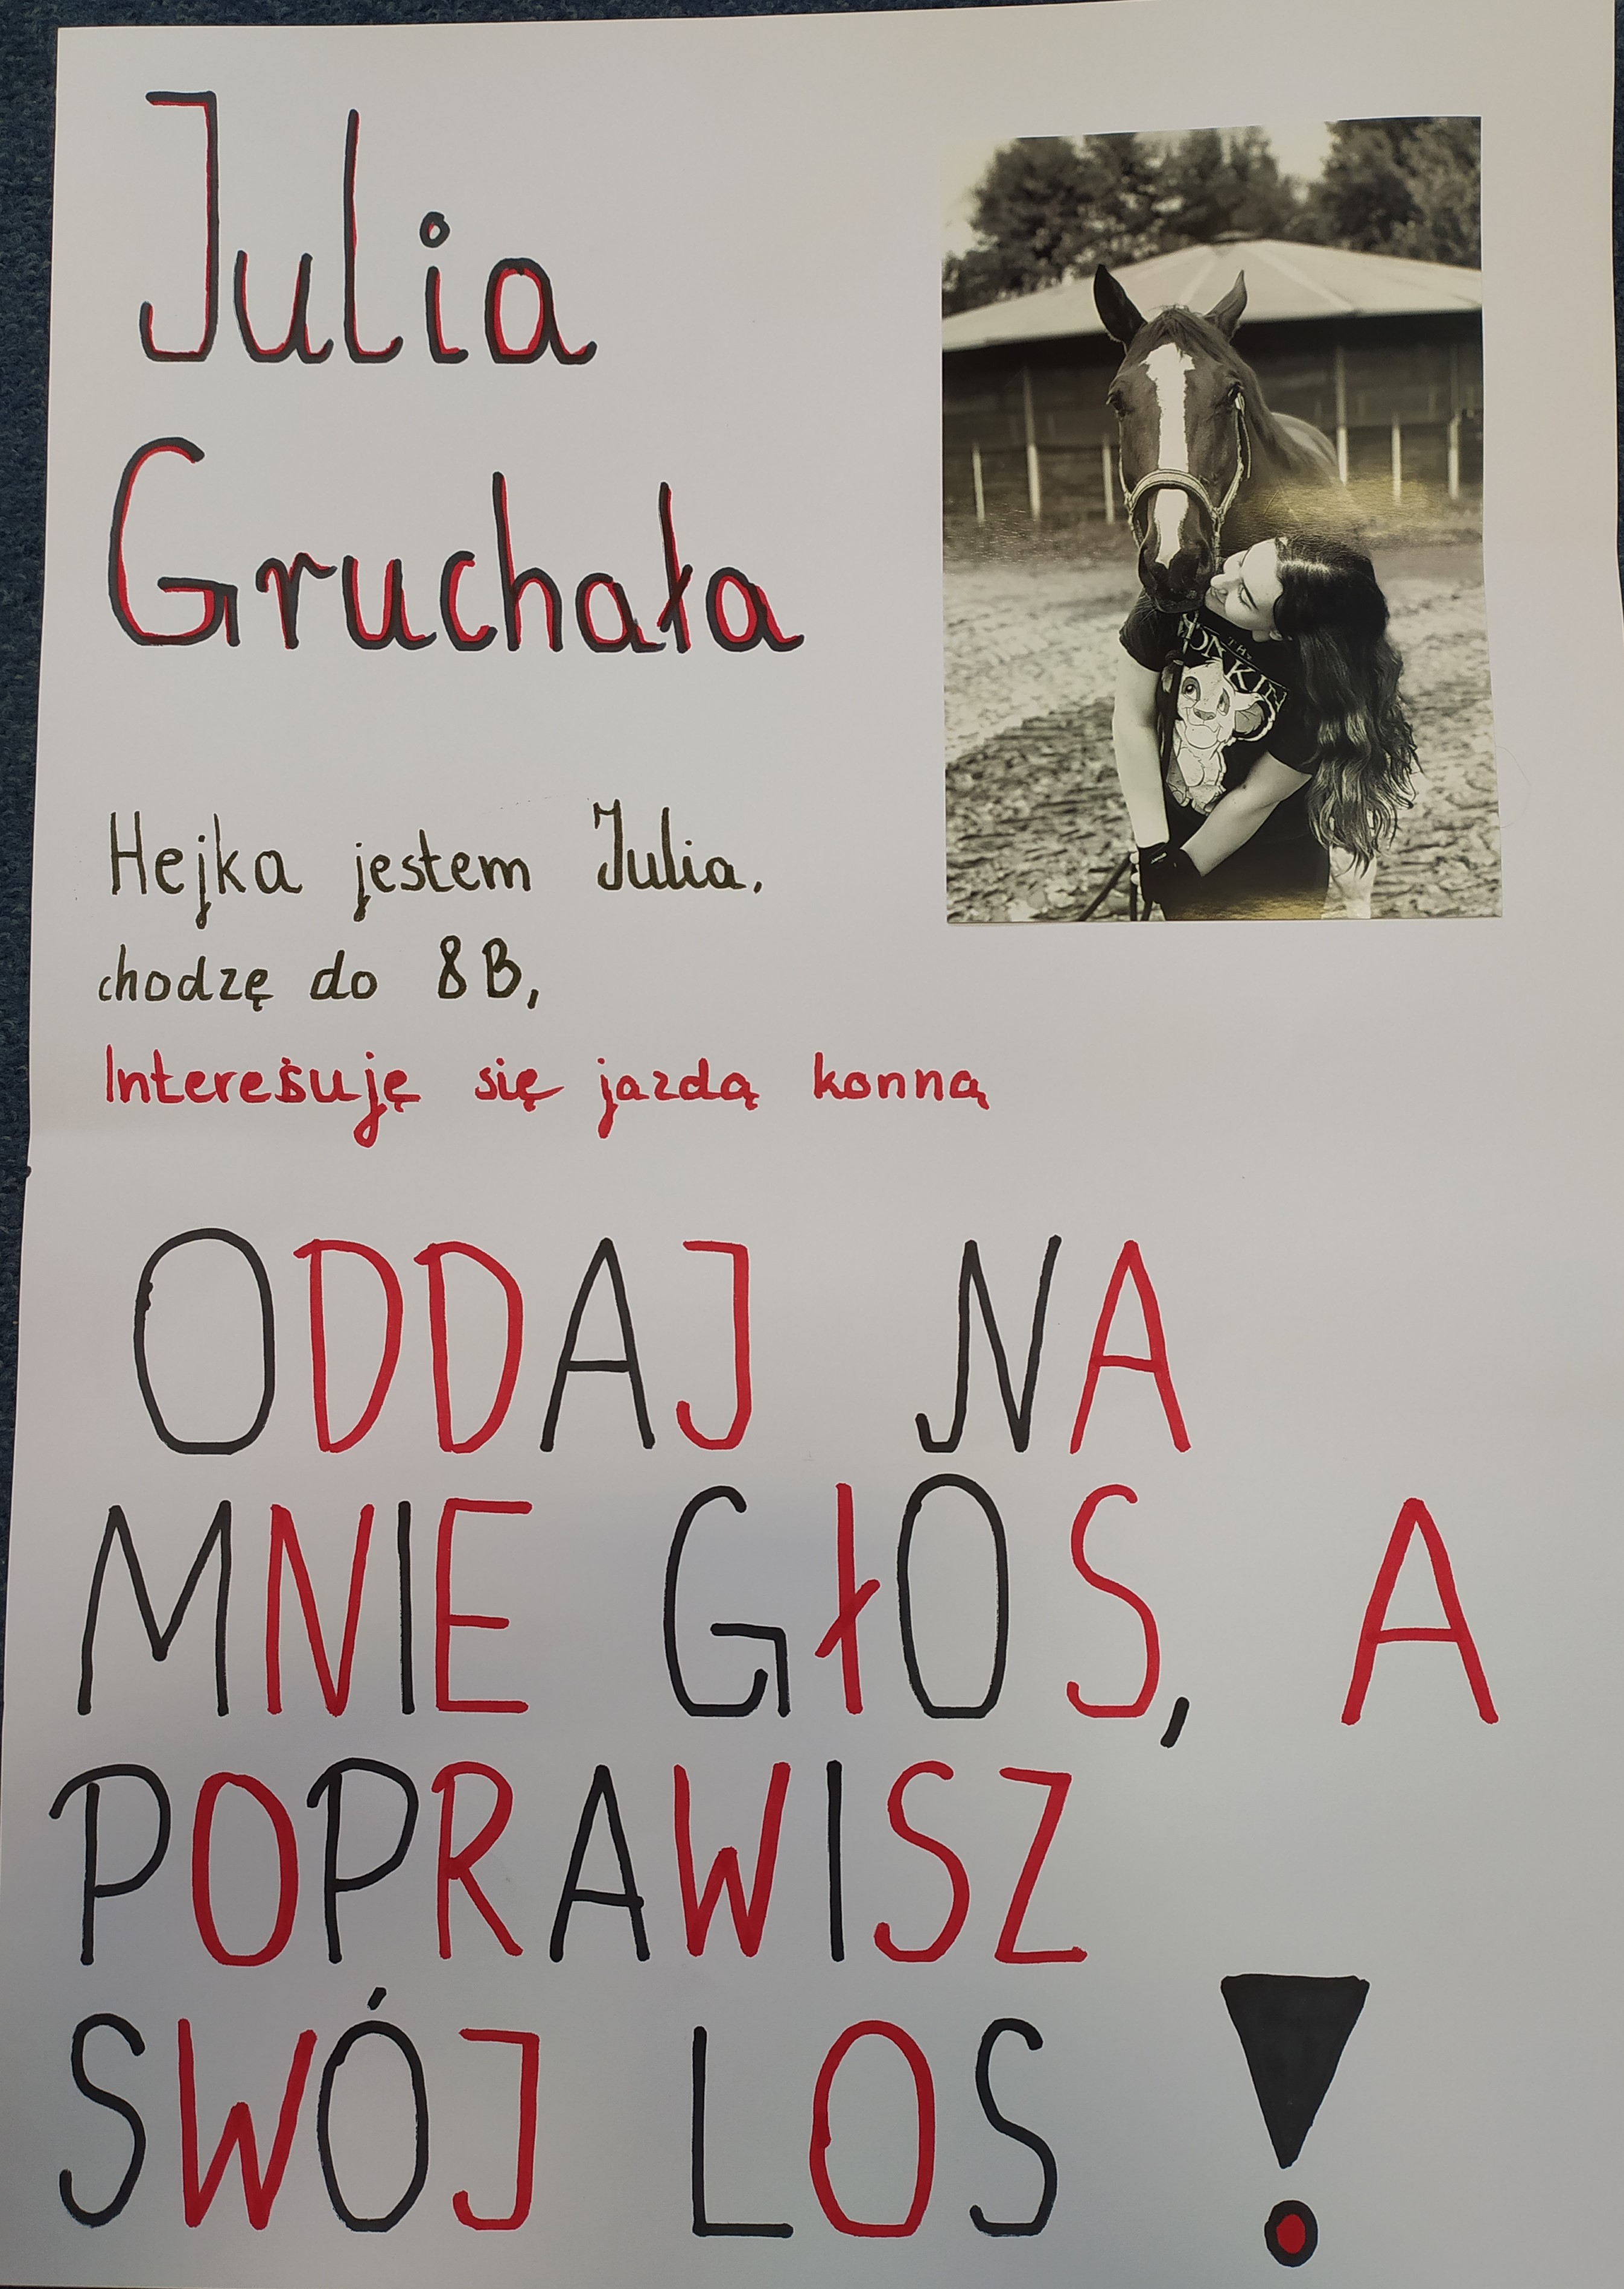 Julia
Gruchała
THE
ION KIN
Hejka jestem Julia.
chodzę do 8B,
Interesuję się jazdą konną
ODDAJ NA
MNIE GŁOS, A
POPRAWISZ
SWÓJ LOS !